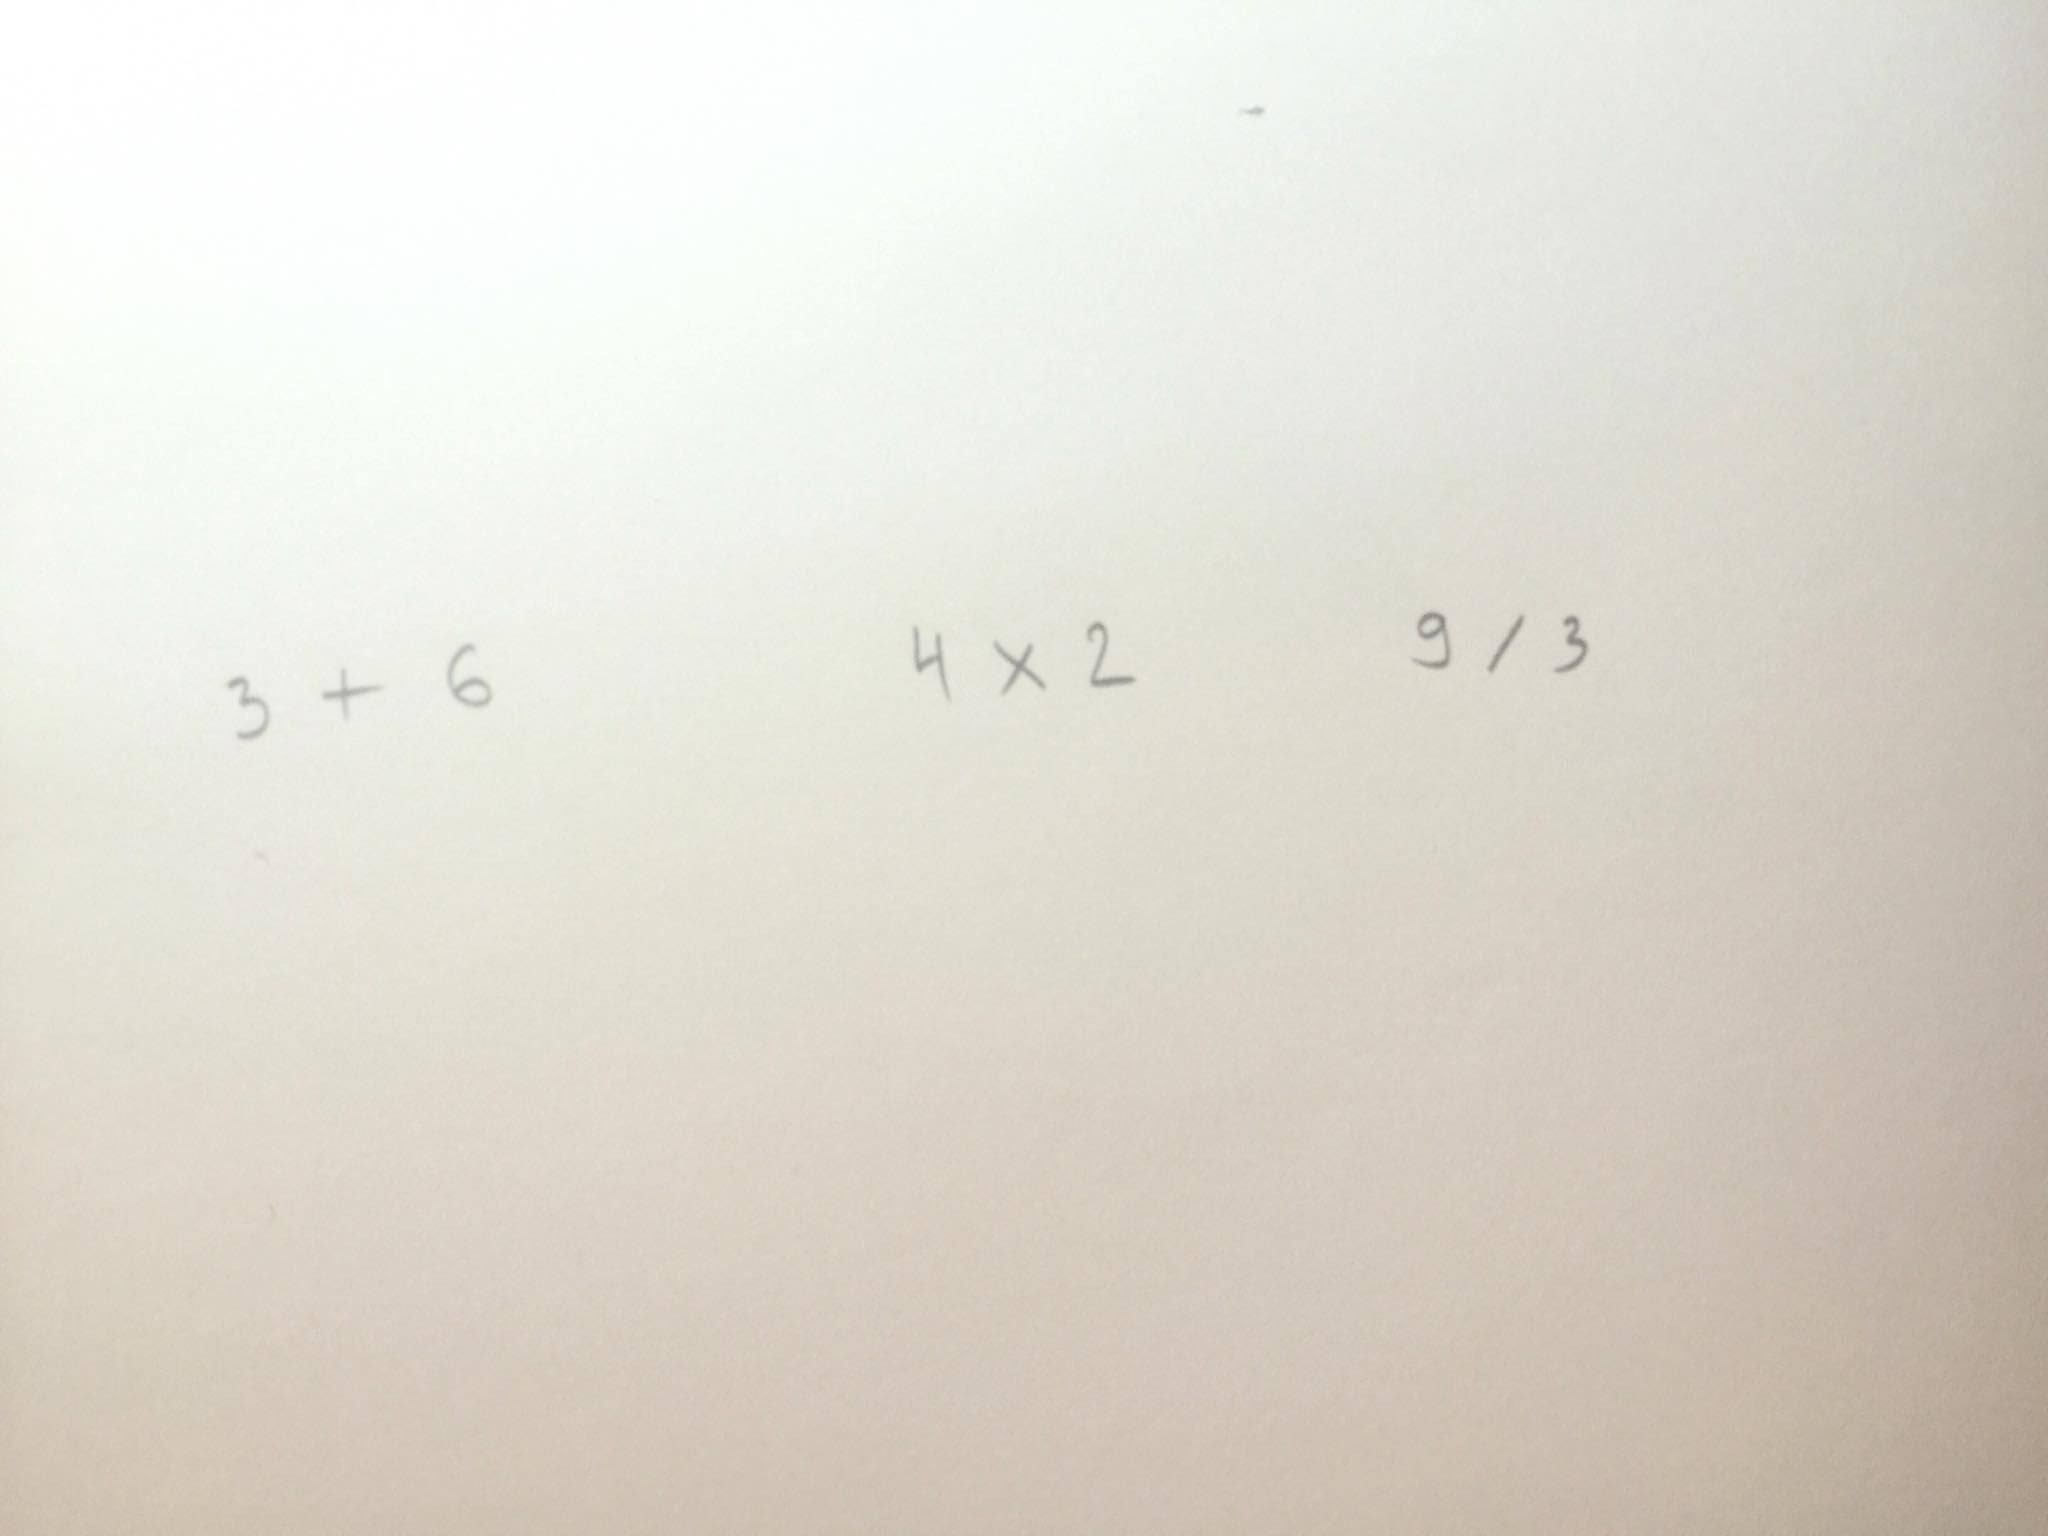 3 + 6 4 x 2 9 / 3